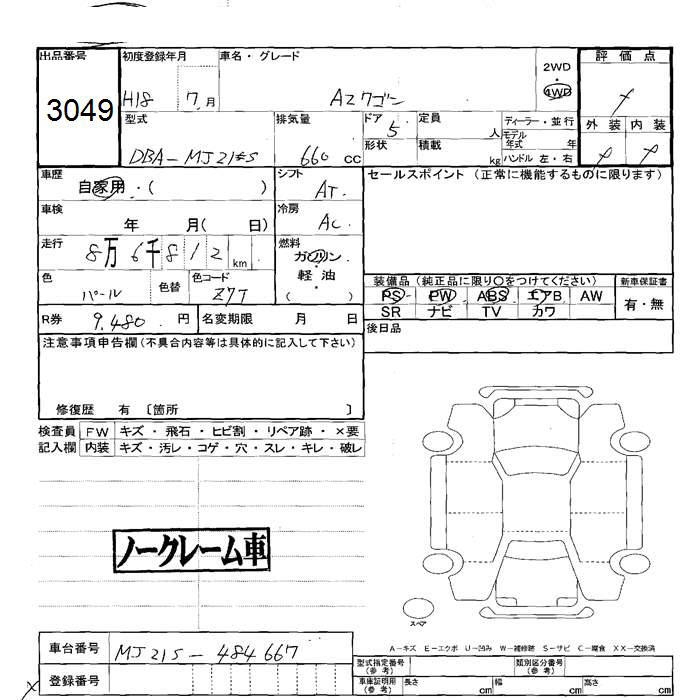 出品番号 初度登録年月 車名・グレード 2WD 評価点
3049 H18 7月 AZワゴン 4WD
型式 排気量 ドア 定員 ディーラー・並行 外装 内装
DBA-MJ21S 660cc 5 人 モデル年式 年
形状 積載 kg ハンドル 左・右
車歴 シフト セールスポイント (正常に機能するものに限ります)
自家用・( ) AT
車検 冷房
年 月( 日) AC
走行 燃料
8万6千812km ガソリン・
色 色替 色コード 軽油
パール Z7T ( )
装備品 (純正品に限り○をつけてください) 新車保証書
PS PW ABS エアB AW 有・無
SR ナビ TV カワ
R券 9.480円 名変期限 月 日 後日品
注意事項申告欄(不具合内容等は具体的に記入して下さい)
修復歴 有 〔箇所 〕
検査員 FW キズ・飛石・ヒビ割・リペア跡・×要
記入欄 内装 キズ・汚レ・コゲ・穴・スレ・キレ・破レ
ノークレーム車
スペア
A-キズ E-エクボ U-凹み W-補修跡 S-サビ C-腐食 XX-交換済
車台番号 MJ21S-484667
型式指定番号(参考) 類別区分番号(参考)
登録番号 車庫証明用(参考) 長さ cm 幅 cm 高さ cm